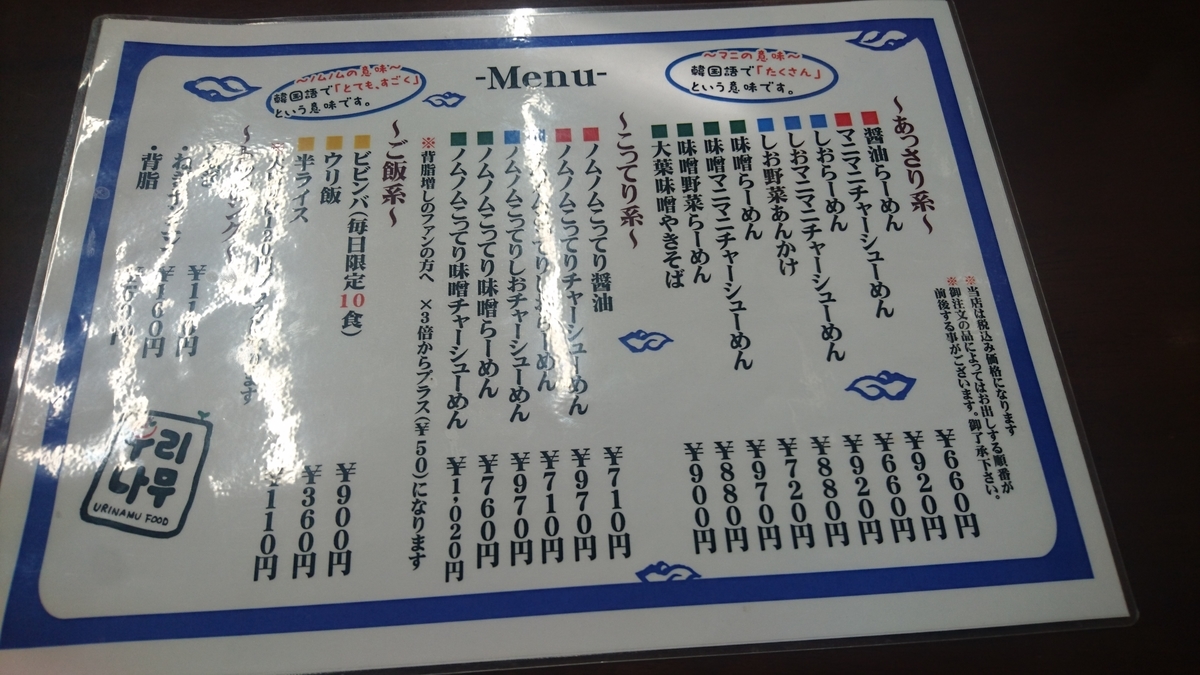 -Menu-
～マニの意味～
韓国語で「たくさん」
という意味です。
～ノムノムの意味～
韓国語で「とても、すごく」
という意味です。
※当店は税込み価格になります
※御注文の品によってはお出しする順番が
前後する事がございます。御了承下さい。
～あっさり系～
醤油らーめん ¥660円
マニマニチャーシューめん ¥920円
しおらーめん ¥660円
しおマニマニチャーシューめん ¥920円
しお野菜あんかけ ¥880円
味噌らーめん ¥720円
味噌マニマニチャーシューめん ¥970円
味噌野菜らーめん ¥880円
大葉味噌やきそば ¥900円
～こってり系～
ノムノムこってり醤油 ¥710円
ノムノムこってりチャーシューめん ¥970円
ノムノムこってりしおらーめん ¥710円
ノムノムこってりしおチャーシューめん ¥970円
ノムノムこってり味噌らーめん ¥760円
ノムノムこってり味噌チャーシューめん ¥1,020円
※背脂増しのファンの方へ ×3倍からプラス(¥50)になります
～ご飯系～
ビビンバ(毎日限定10食) ¥900円
ウリ飯 ¥360円
半ライス ¥110円
・背脂
우리
나무
URINAMU FOOD